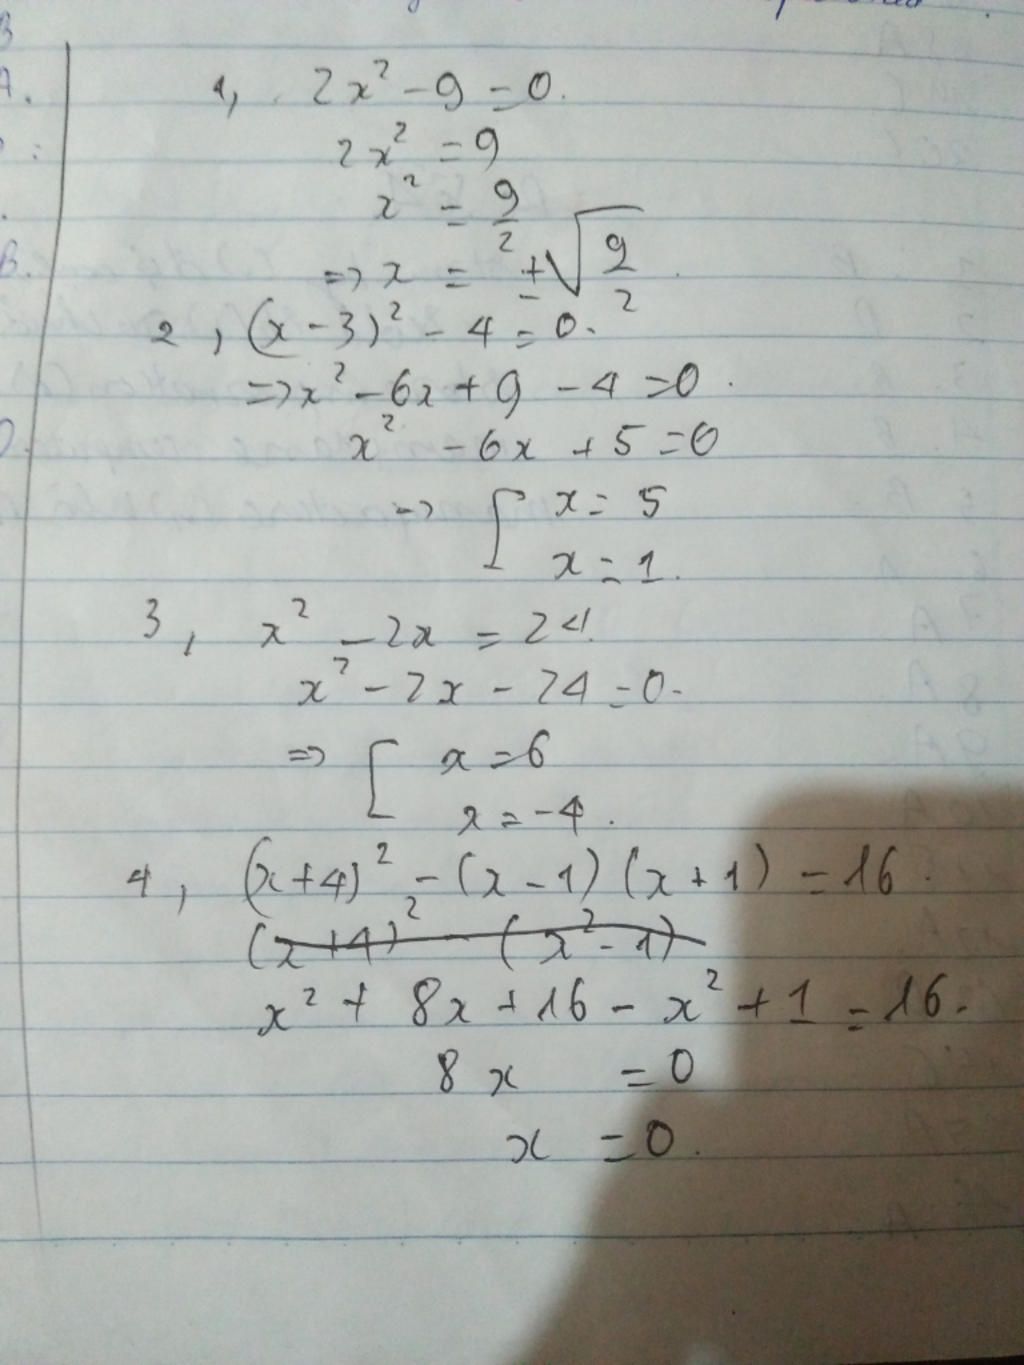 1, 2x² - 9 = 0.
2x² = 9
x² = 9/2
=> x = ±√(9/2).
2, (x - 3)² - 4 = 0.
=> x² - 6x + 9 - 4 = 0.
x² - 6x + 5 = 0
-> [ x = 5
x = 1.
3, x² - 2x = 24.
x² - 2x - 24 = 0.
=> [ x = 6
x = -4.
4, (x + 4)² - (x - 1) (x + 1) = 16.
(x + 4)² - (x² - 1)
x² + 8x + 16 - x² + 1 = 16.
8x = 0
x = 0.